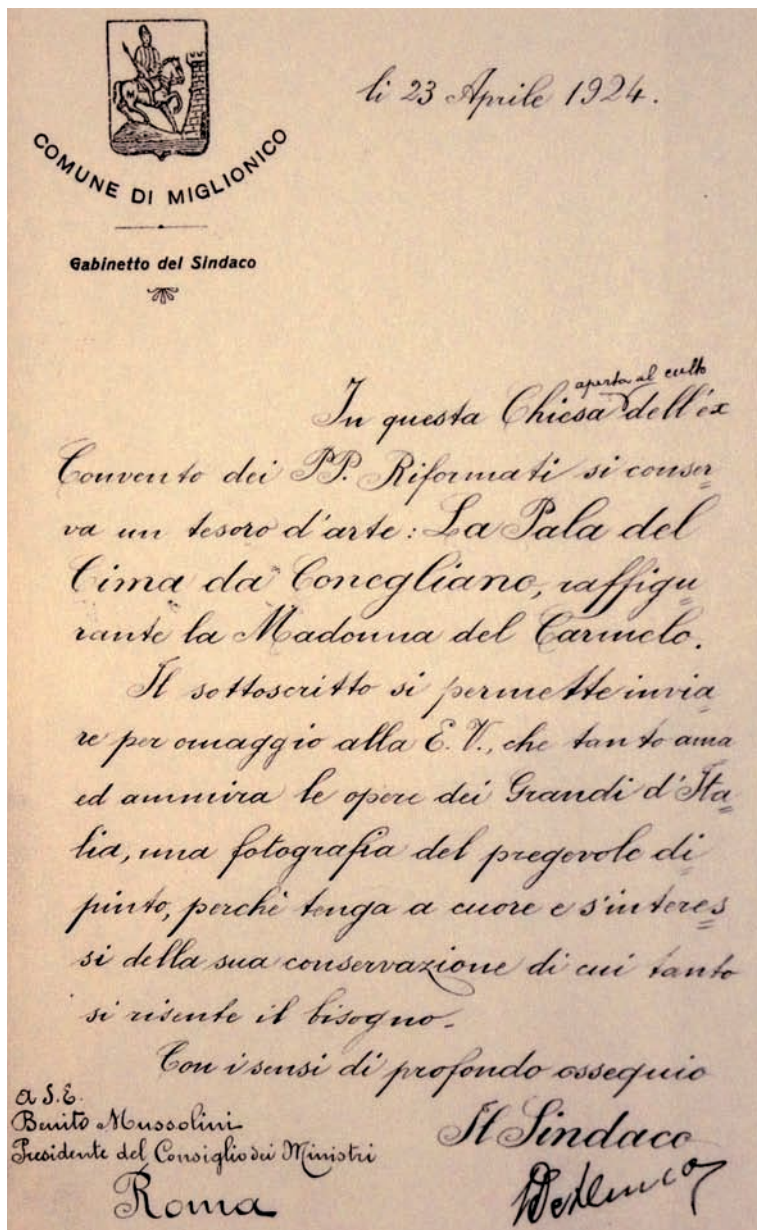 COMUNE DI MIGLIONICO
Gabinetto del Sindaco
li 23 Aprile 1924.
aperta al culto
In questa Chiesa dell'ex
Convento dei PP. Riformati si conser=
va un tesoro d'arte: La Pala del
Cima da Conegliano, raffigu=
rante la Madonna del Carmelo.
Il sottoscritto si permette invia=
re per omaggio alla E. V., che tanto ama
ed ammira le opere dei Grandi d'Ita=
lia, una fotografia del pregevole di=
pinto, perchè tenga a cuore e s'interes=
si della sua conservazione di cui tanto
si risente il bisogno.
Con i sensi di profondo ossequio
Il Sindaco
a S.E.
Benito Mussolini
Presidente del Consiglio dei Ministri
Roma